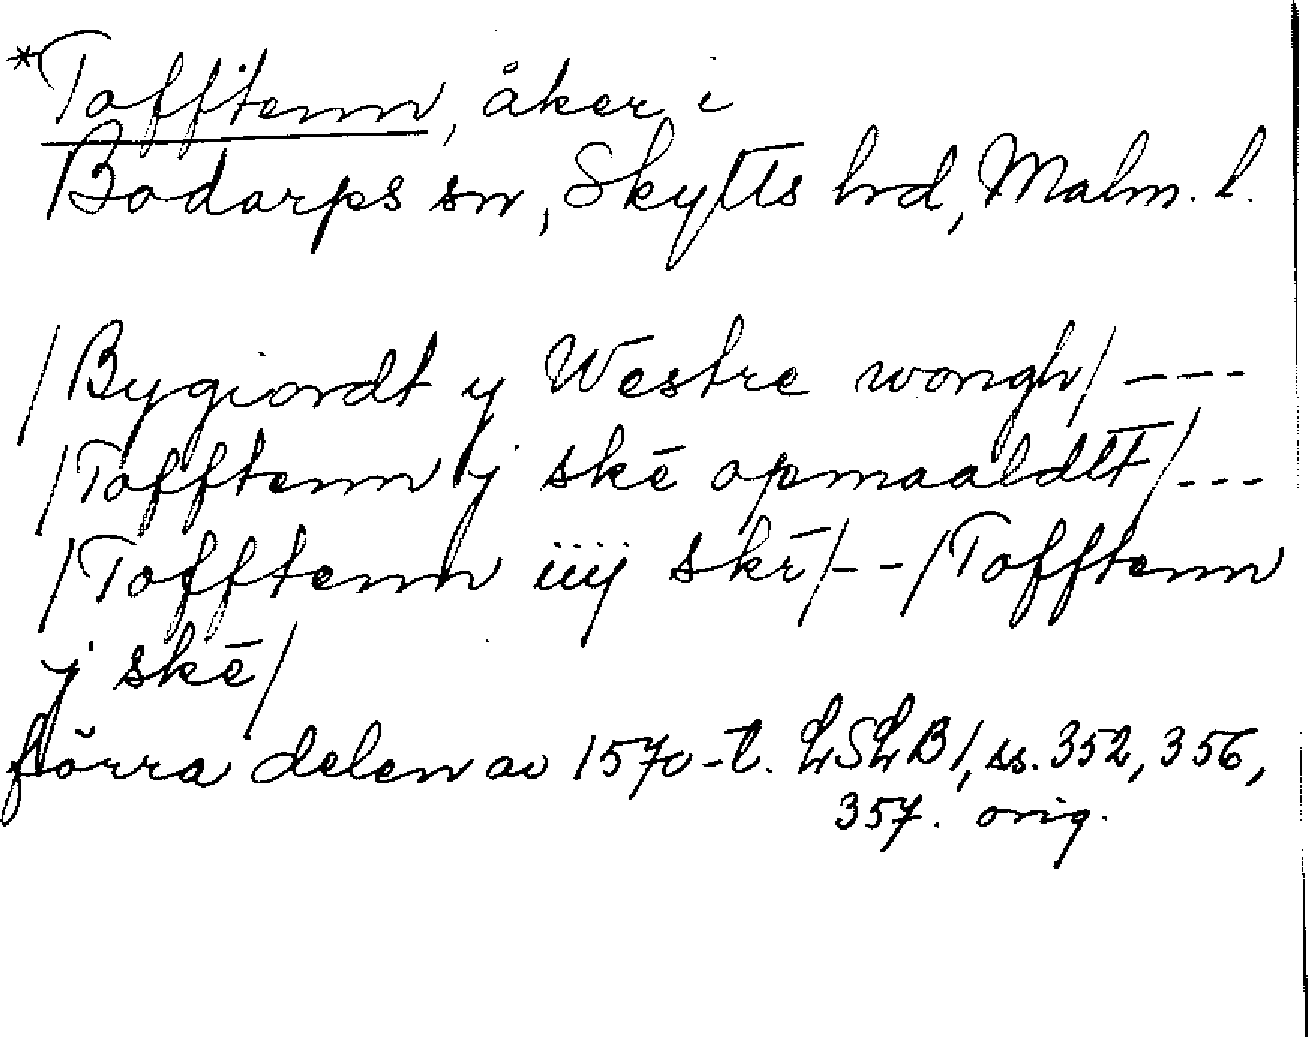 *Tofftenn, åker i
Bodarps sn, Skytts hd, Malm. l.
/Bygiordt y Westre wongh/ ---
/Tofftenn j skē opmaaldtt/ ---
/Tofftenn iiij skr̄/ -- /Tofftenn
j skē/
förra delen av 1570-t. LSLB1, ss. 352, 356,
357. orig.